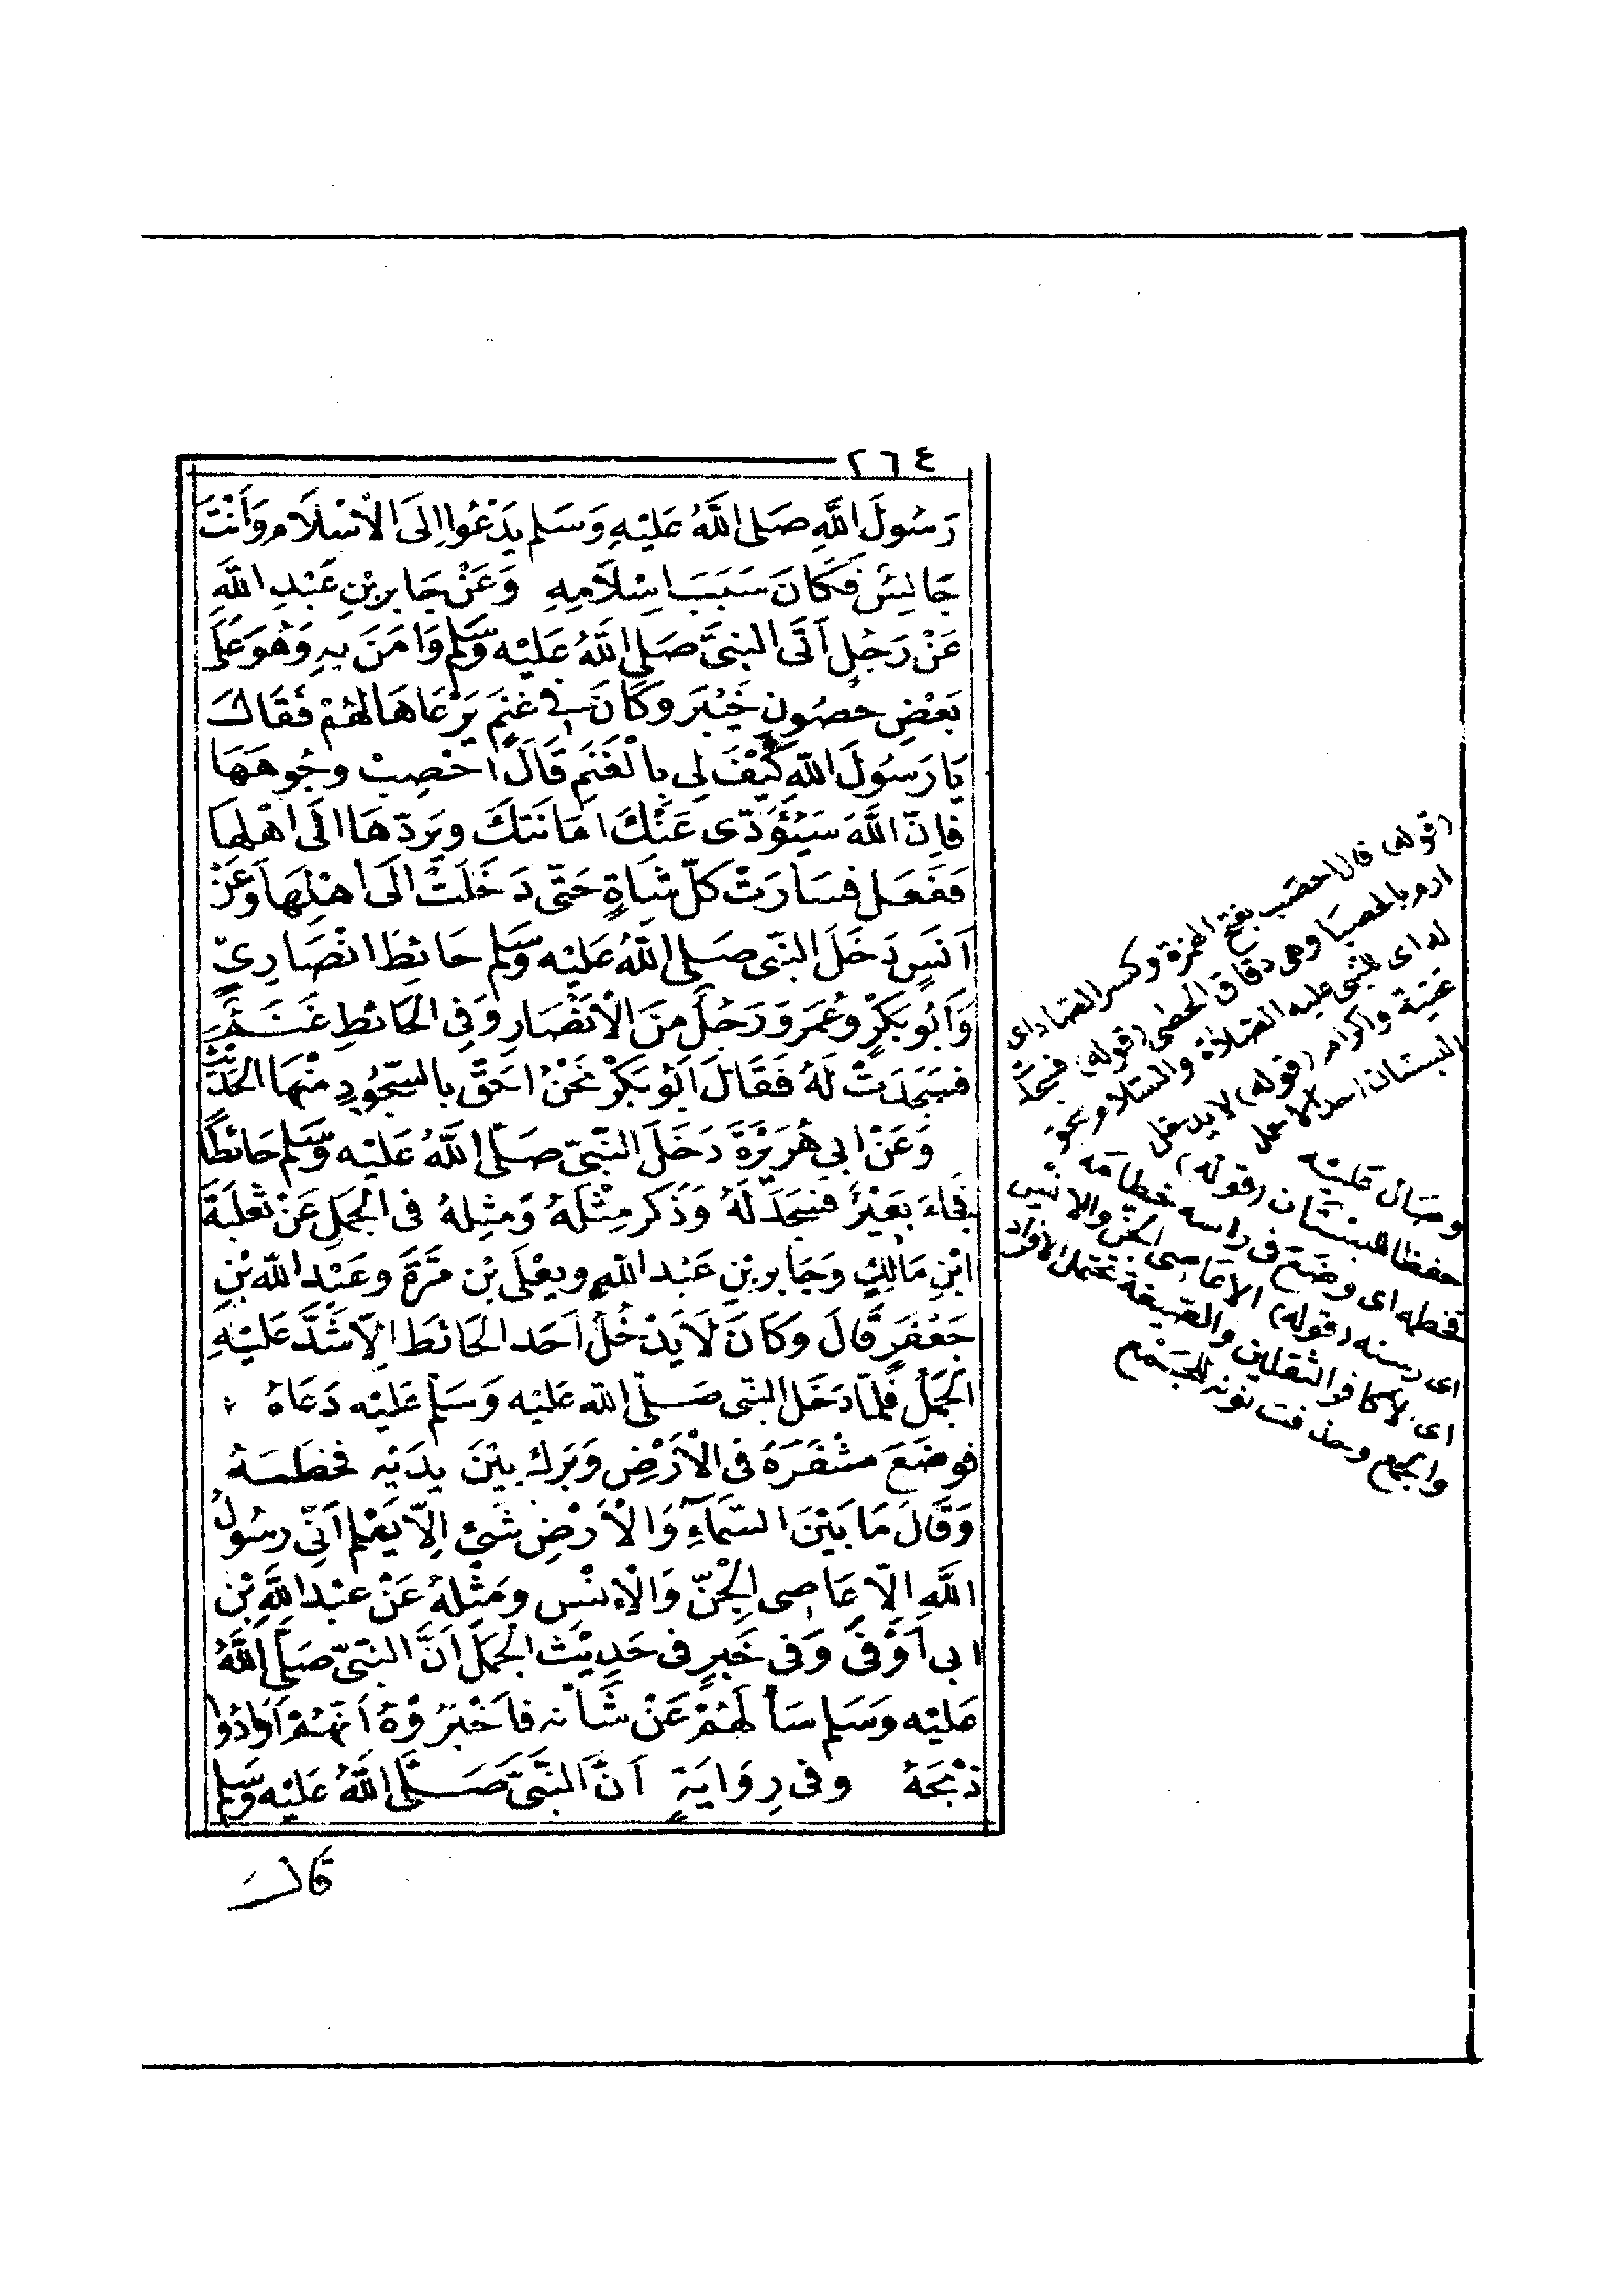 ٢٦٤
رَسُولَ اللَّهِ صَلى اللَّهُ عَلَيْهِ وَسَلم يَدْعُوا اِلَى الْاسْلَام وَأَنْتَ
جَالِسٌ فَكَانَ سَبَبَ اِسْلَامِهِ وَعَنْ جَابِرِ بْنِ عَبْدِ اللَّهِ
عَنْ رَجُلٍ أَتَى النبِىَّ صَلى اللَّهُ عَلَيْه وَسَلم وَاٰمَنَ بِهِ وَهُوَ عَلَى
بَعْضِ حصُونِ خَيْبَر وَكَانَ فِى غنَمٍ يَرْعَاهَا لهُمْ فَقَالَ
يَا رَسُولَ اللّهِ كَيْفَ لِى بِالْغَنَمِ قَالَ احْصِبْ وجُوهَهَا
فاِنّ اللَّهَ سَيُؤَدّى عَنْكَ امَانَتكَ ويَردّهَا الَى اهْلِهَا
فَفَعَل فسَارَتْ كلّ شَاةٍ حَتّى دَخَلَتْ الَى اهْلِهَا وَعَنْ
اَنَسٍ دَخَلَ النبّى صَلى اللَّهُ عَلَيْه وَسَلم حَائِطَ انْصَارِىّ
وَأَبُو بَكْرٍ وعُمَر وَرَجُلٌ مِنَ الْأَنْصَارِ وَفِى الحَائطِ غَنَمٌ
فسَجَدَتْ لَهُ فَقَالَ أَبُو بَكْر نَحْنُ احَقّ بالسّجُودِ منْهَا الحَدِيْث
وَعَنْ ابِى هُرَيْرَةَ دَخَلَ النَّبّى صَلّى اللَّهُ عَلَيْه وَسَلم حَائطًا
فجَاءَ بَعِيْرٌ فسَجَدَ لَهُ وَذَكرَ مِثْلَهُ وَمثِلهُ فى الْجَملِ عَنْ ثَعْلَبَةَ
ابْنِ مَالِكٍ وَجَابِر بْنِ عَبْد اللّهِ ويعْلَى بْن مُرَّةَ وعَبْد اللّه بْنِ
جَعْفَرٍ قَالَ وَكَانَ لَا يَدْخُلُ اَحَد الحَائطَ اِلّا شَدَّ عَلَيْهِ
الجَمَلُ فَلمّا دَخَلَ النبّى صَلّى اللّه عَليْه وَسَلم عَلَيْه دَعَاهُ
فوضَعَ مشْفَرَهُ فى الْأَرْضِ وَبَرَكَ بيْنَ يدَيْه فخطَمَهُ
وَقَالَ مَا بَيْنَ السَّمَآءِ وَالْأَرْضِ شَىْءٌ اِلّا يَعْلم اَنّى رسُولُ
اللَّهِ الّا عَاصِى الْجِنّ وَالْإِنْس ومَثْلهُ عَنْ عبْد اللَّهِ بْن
ابى أَوْفَى وَفى خَبرٍ فى حَدِيْث الجَمَل اَنَّ النبّىّ صَلَّى اللَّهُ
عَلَيْه وَسَلم سَألَهُمْ عَنْ شَأنهِ فاَخْبَرُوْهُ اَنّهمْ اَرَادُوا
ذبْحَهُ وفى رِوَايَةٍ اَنَّ النَّبىّ صَلَّى اللَّهُ عَلَيْه وَسَلم
قَالَ
(قوله) قال احصب بفتح الهمزة وكسر الصاد اى
ارم بالحصبا وهى دقاق الحصى (قوله) فسجد
له اى للنبى عليه الصلاة والسلام سجود
تحية واكرام (قوله) لا يدخل
البستان احد الا حمل
وصال عليه
حفظا للبستان (قوله)
فخطمه اى وضع فى راسه خطامه
اى رسنه (قوله) الا عاصى الجن والانس
اى الا كافر الثقلين والصيغة تحتمل الافراد
والجمع وحذفت نونه للجمع